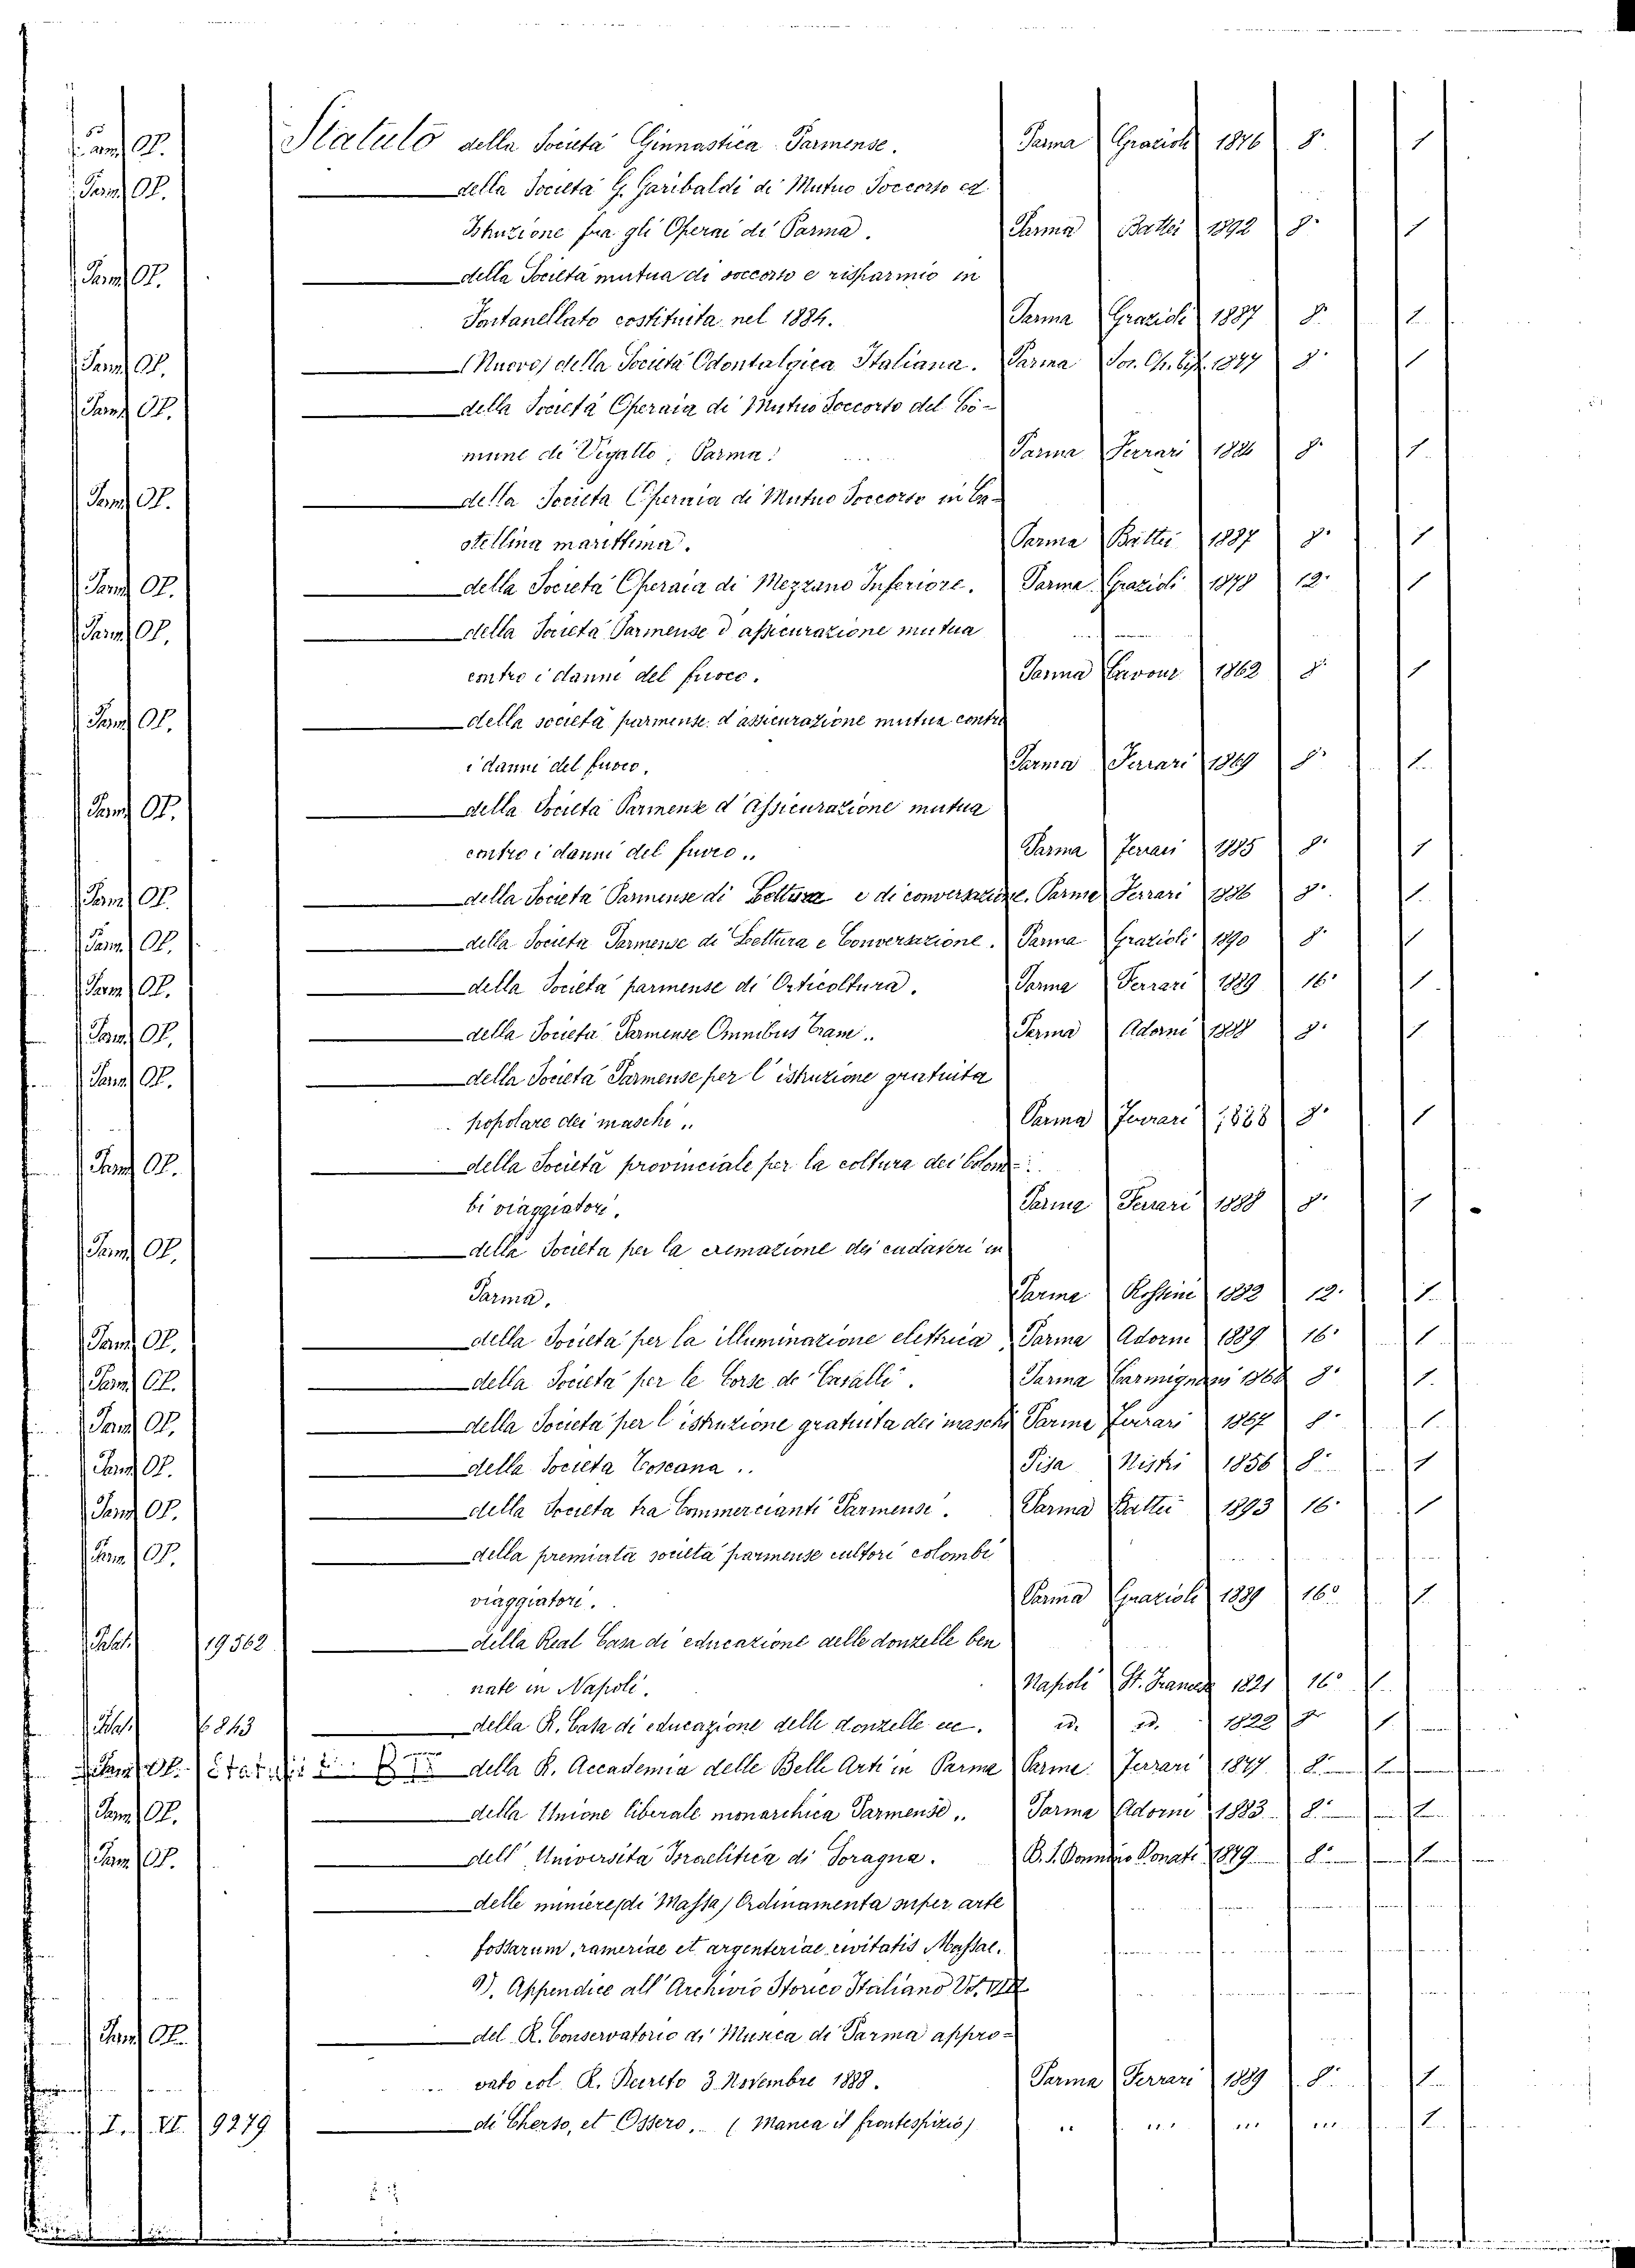 Parm. Op. Statuto della Società Ginnastica Parmense. Parma Grazioli 1876 8° 1
Parm. Op. della Società G. Garibaldi di Mutuo Soccorso ed
Istruzione fra gli Operai di Parma. Parma Battei 1892 8° 1
Parm. Op. della Società mutua di soccorso e risparmio in
Fontanellato costituita nel 1884. Parma Grazioli 1887 8° 1
Parm. Op. (Nuovo) della Società Odontalgica Italiana. Parma 1847 8° 1
Parm. Op. della Società Operaia di Mutuo Soccorso del Co-
mune di Vigatto, Parma. Parma Ferrari 1886 8° 1
Parm. Op. della Società Operaia di Mutuo Soccorso in Ca-
stellina marittima. Parma Battei 1887 8° 1
Parm. Op. della Società Operaia di Mezzano Inferiore. Parma Grazioli 1878 12° 1
Parm. Op. della Società Parmense d'assicurazione mutua
contro i danni del fuoco. Parma Cavour 1862 8° 1
Parm. Op. della società parmense d'assicurazione mutua contro
i danni del fuoco. Parma Ferrari 1869 8° 1
Parm. Op. della Società Parmense d'assicurazione mutua
contro i danni del fuoco.. Parma Ferrari 1885 8° 1
Parm. Op. della Società Parmense di Lettura e di conversazione. Parma Ferrari 1886 8° 1
Parm. Op. della Società Parmense di Lettura e Conversazione. Parma Grazioli 1890 8° 1
Parm. Op. della Società parmense di Orticoltura. Parma Ferrari 1889 16° 1
Parm. Op. della Società Parmense Omnibus Tram.. Parma Adorni 1888 8° 1
Parm. Op. della Società Parmense per l'istruzione gratuita
popolare dei maschi.. Parma Ferrari 1868 8° 1
Parm. Op. della Società provinciale per la coltura dei Colom-
bi viaggiatori. Parma Ferrari 1888 8° 1
Parm. Op. della Società per la cremazione dei cadaveri in
Parma. Parma Rossini 1882 12° 1
Parm. Op. della Società per la illuminazione elettrica Parma Adorni 1889 16° 1
Parm. Op. della Società per le Corse de' Cavalli. Parma Carmignani 1868 8° 1
Parm. Op. della Società per l'istruzione gratuita dei maschi Parma Ferrari 1867 8° 1
Parm. Op. della Società Toscana.. Pisa Nistri 1856 8° 1
Parm. Op. della Società tra Commercianti Parmensi. Parma Battei 1893 16° 1
Parm. Op. della premiata società parmense cultori colombi
viaggiatori. Parma Grazioli 1889 16° 1
Palat. 19562 della Real Casa di educazione delle donzelle ben
nate in Napoli. Napoli St. Frances 1821 16° 1
Palat. 6843 della R. Casa di educazione delle donzelle ec. id. id. 1822 8° 1
Parm. Op. della R. Accademia delle Belle Arti in Parma Parma Ferrari 1847 8° 1
Parm. Op. della Unione liberale monarchica Parmense.. Parma Adorni 1883 8° 1
Parm. Op. dell'Università Israelitica di Soragna. B. S. Donnino Donati 1879 8° 1
delle miniere (di Massa) Ordinamenta super arte
fossarum, rameriae et argenteriae civitatis Massae.
V. Appendice all'Archivio Storico Italiano Vol. VIII
Parm. Op. del R. Conservatorio di Musica di Parma appro-
vato col R. Decreto 3 Novembre 1888. Parma Ferrari 1889 8° 1
I. VI. 9279 di Cherso, et Ossero. (Manca il frontespizio) .. ... ... ... 1